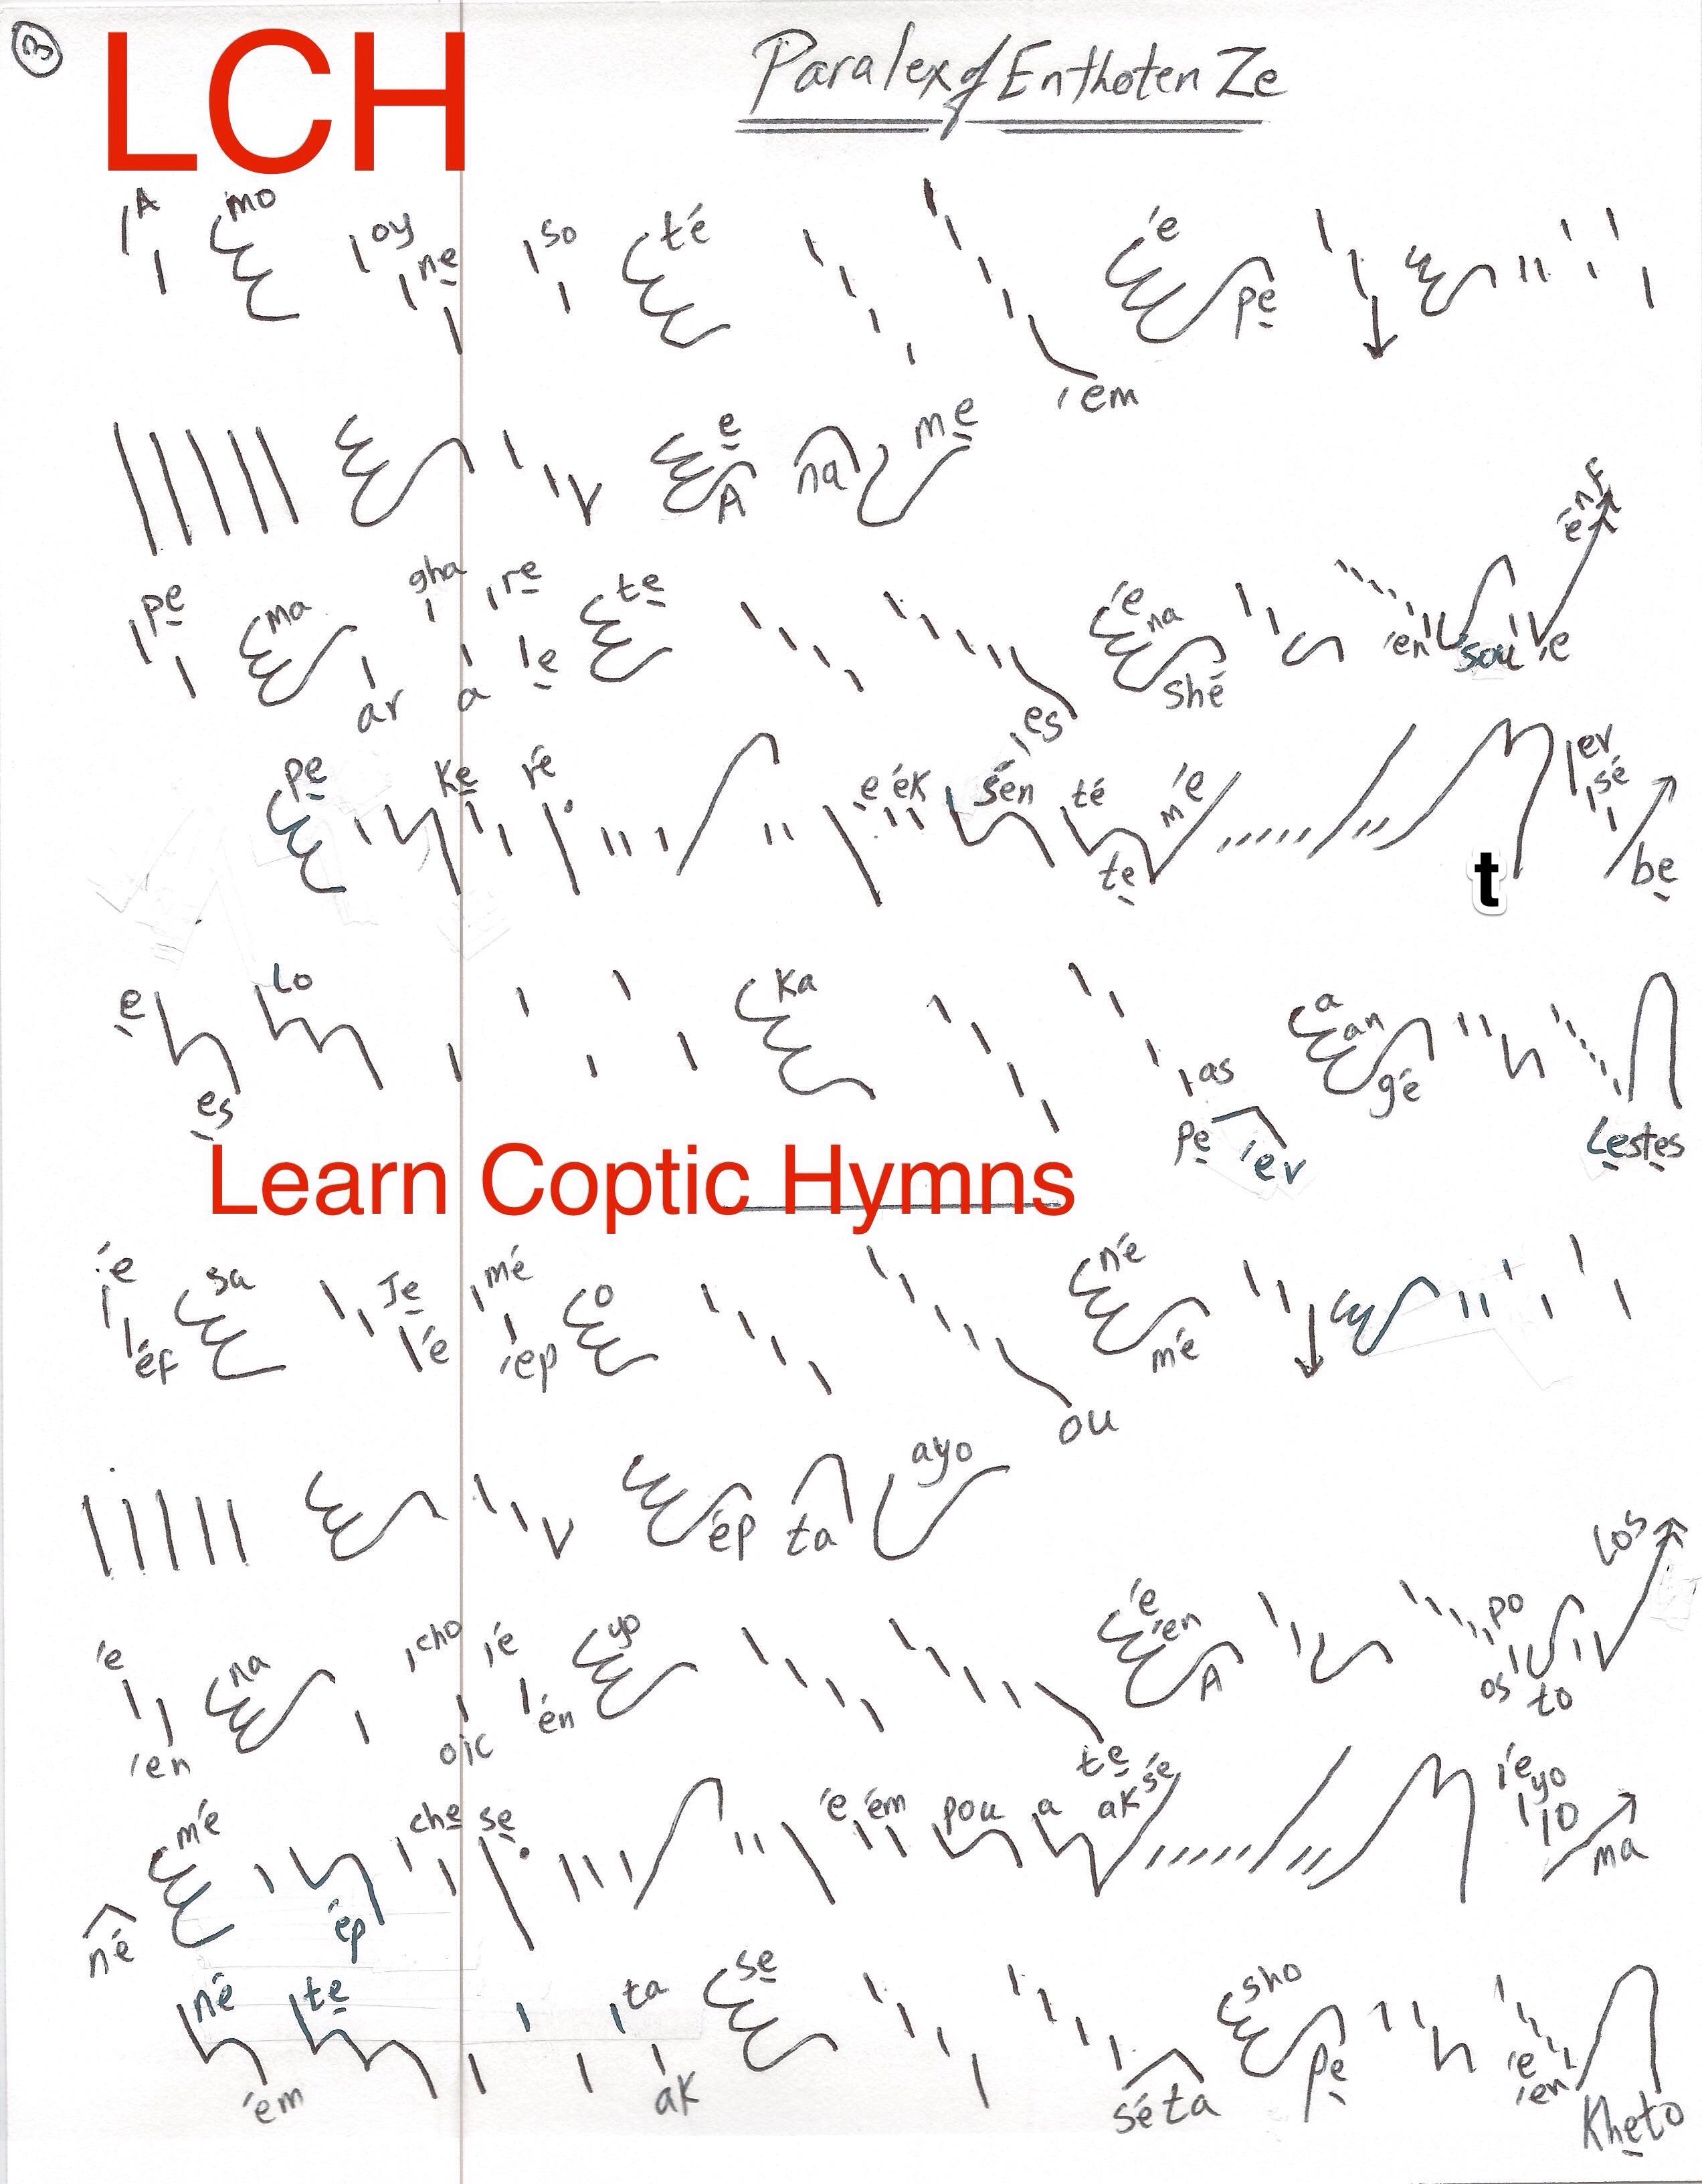 3
LCH
Paralex of Enthoten Ze
A mo oy ne so té 'em 'e pe
e A na me
pe ma ar gha a re le te es 'e na shé 'en sou 'e énf
pe ke ré e ék sén té te m'e t er sé be
e es Lo ka as pe 'er a an gé Lestes
Learn Coptic Hymns
'e éf sa Je 'e mé 'ep o ou né mé
ép ta ayo
'e 'en na cho oic 'é én yo te 'e 'en A po os to Los
né mé ép che se 'e ém pou a ak sé 'e yo 10 ma
né 'em te ta ak se sé ta sho pe 'e 'en Kheto